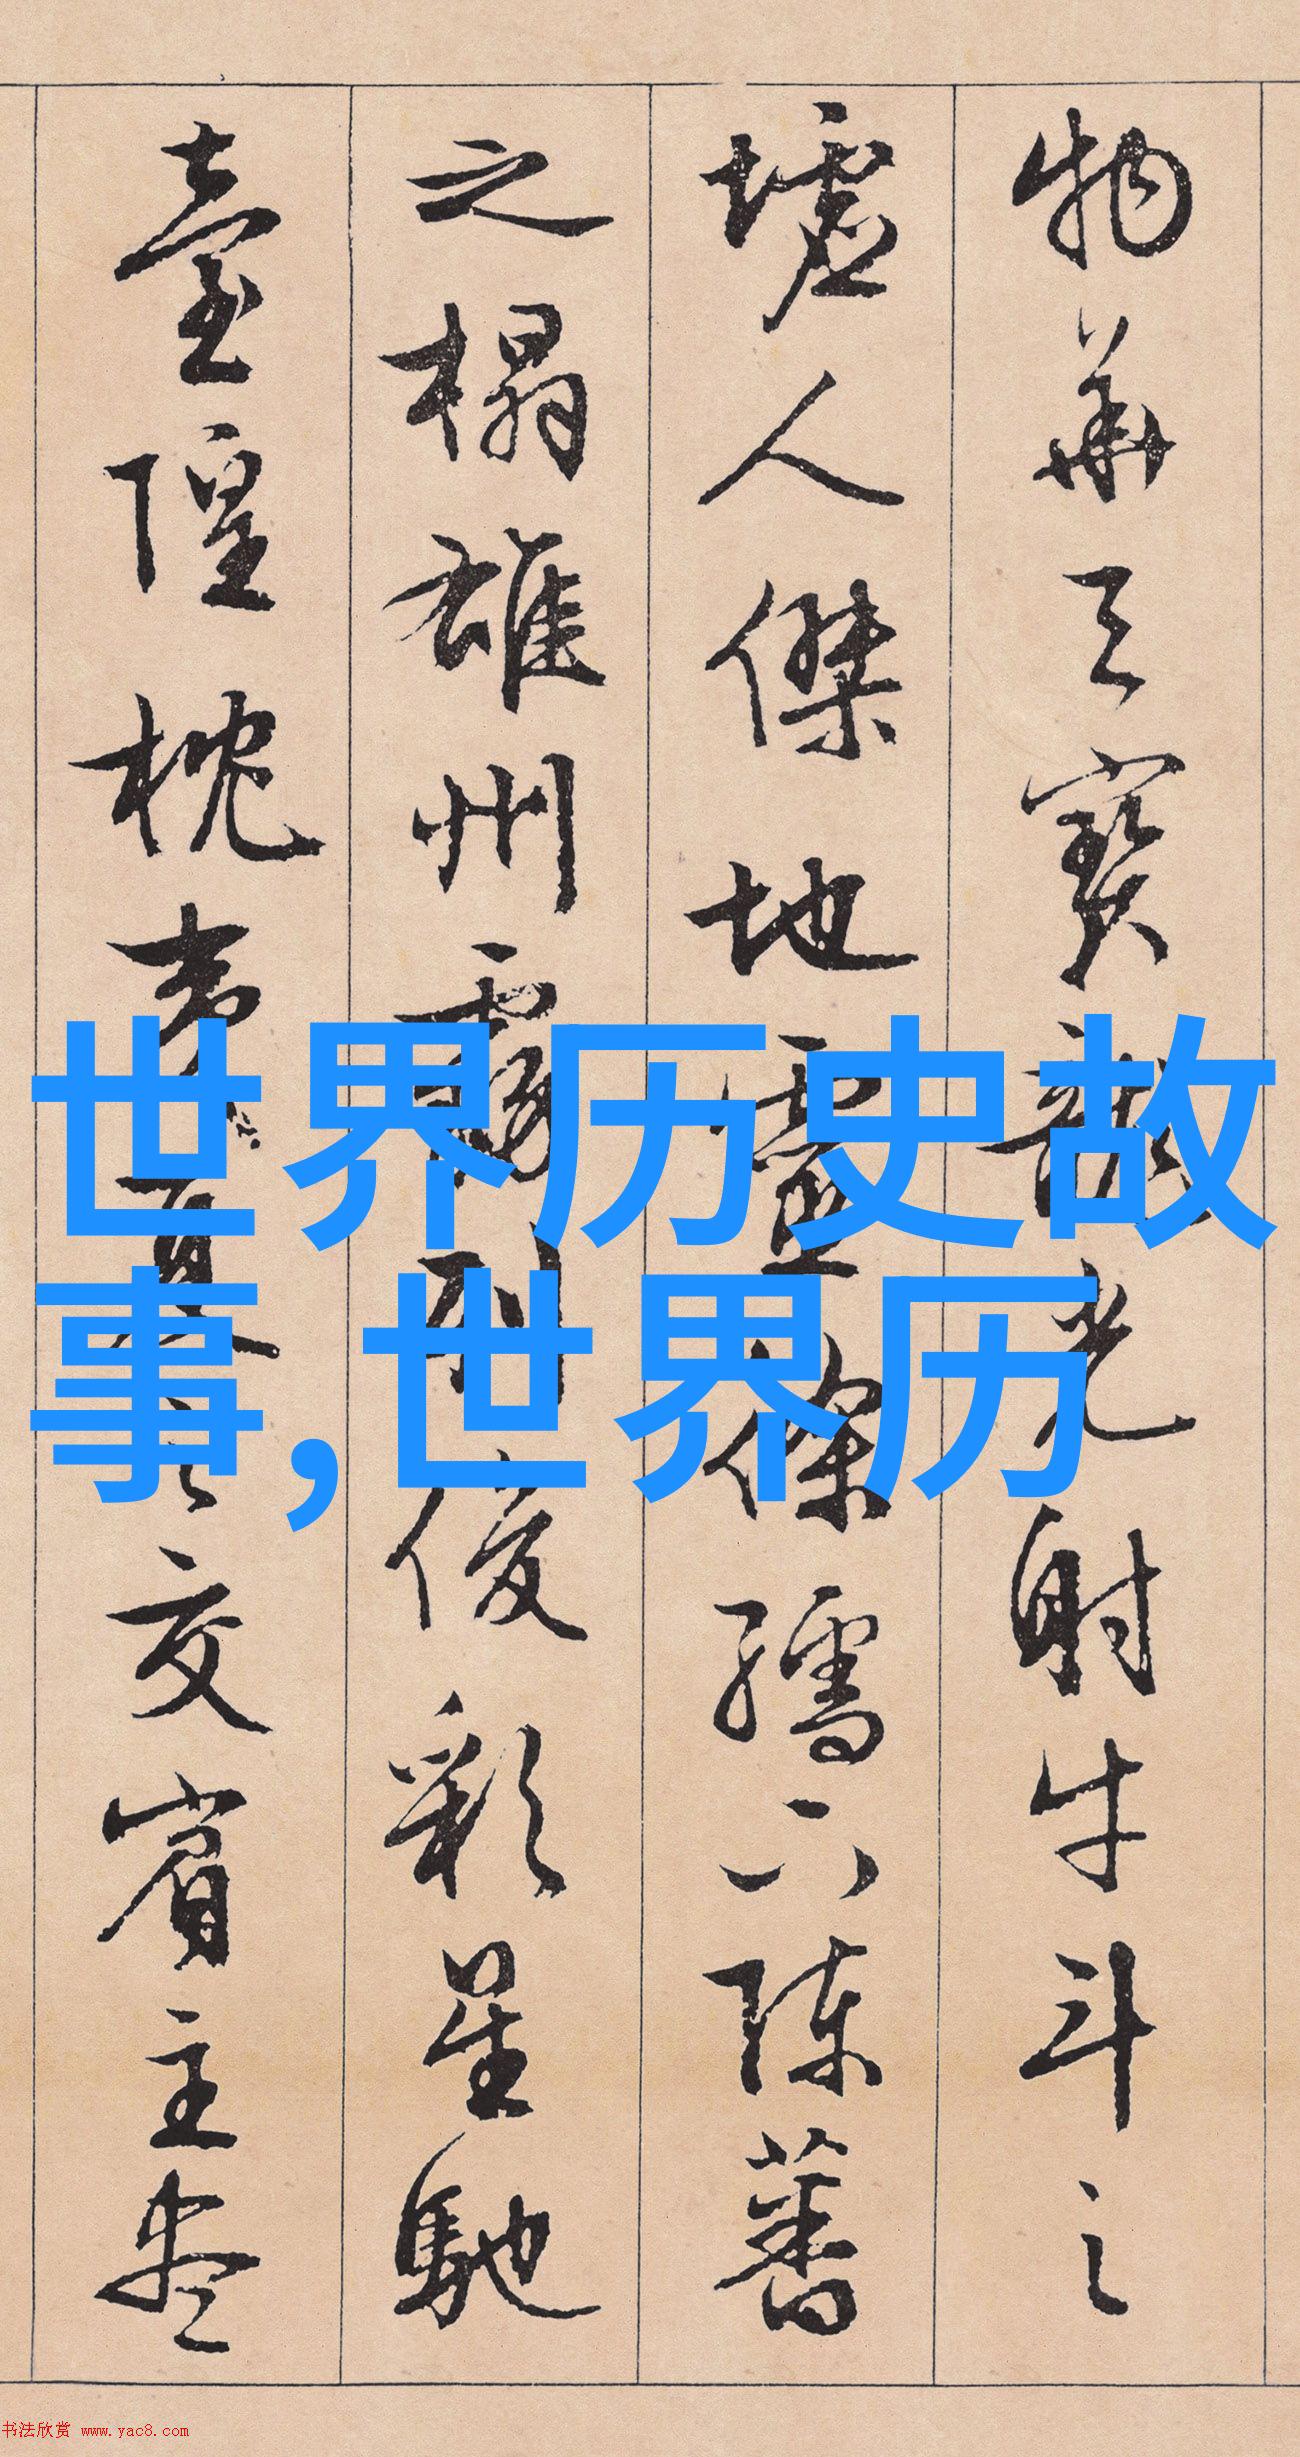 物華天寶龍光射牛斗之
墟人傑地靈徐孺下陳蕃
之榻雄州霧列俊彩星馳
臺隍枕夷夏之交賓主盡
世界历史故
事,世界历
书法欣赏 www.yac8.com